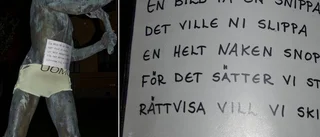 EN BILD PÅ EN SNIPPA
DET VILLE NI SLIPPA
EN HELT NAKEN SNOP
FÖR DET SÄTTER VI ST
RÄTTVISA VILL VI SKI